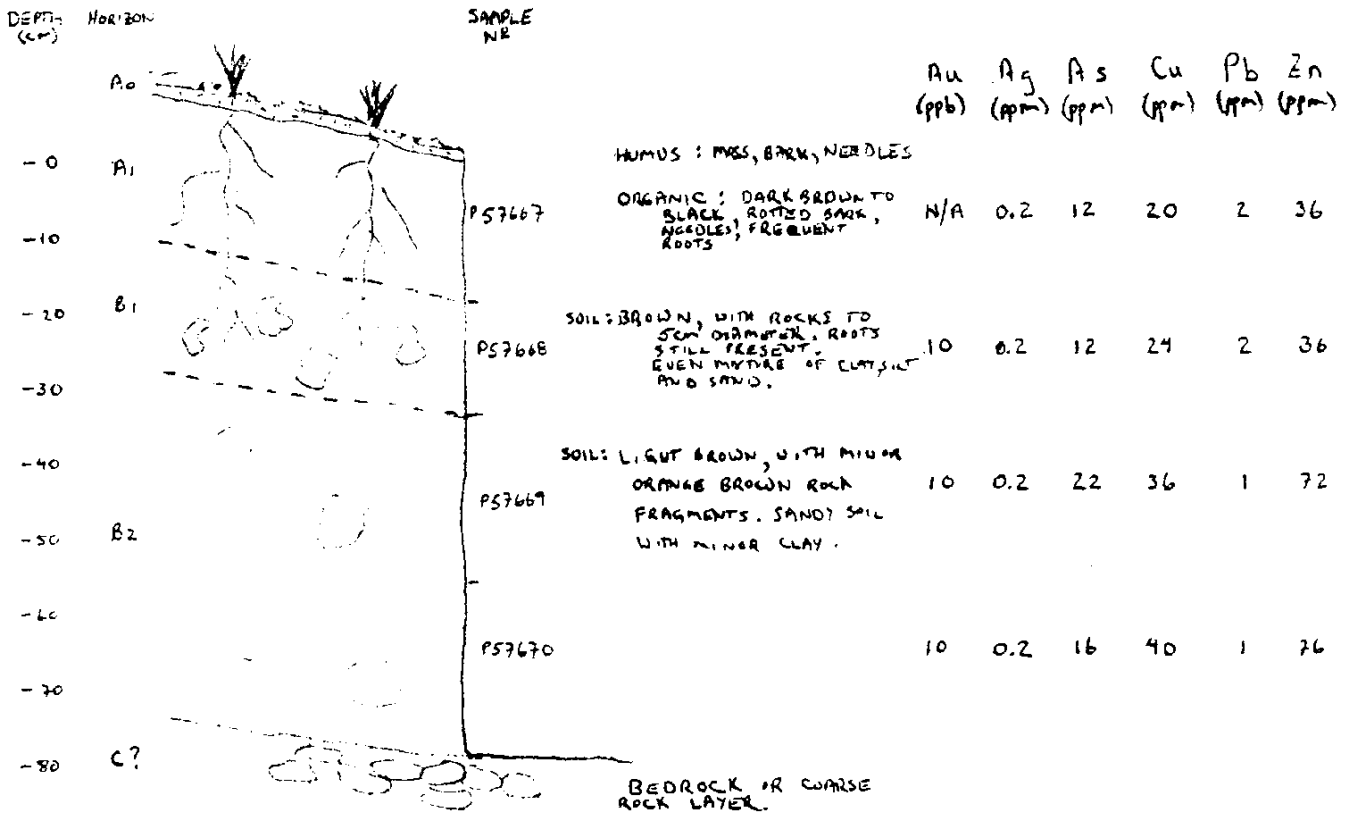 DEPTH HORIZON SAMPLE
(cm) NR
Au Ag As Cu Pb Zn
(ppb) (ppm) (ppm) (ppm) (ppm) (ppm)
A0
HUMUS : MOSS, BARK, NEEDLES
- 0 A1
ORGANIC : DARK BROWN TO
BLACK, ROTTED BARK,
NEEDLES, FREQUENT
ROOTS
P57667 N/A 0.2 12 20 2 36
- 10
- 20 B1
SOIL: BROWN, WITH ROCKS TO
5cm DIAMETER. ROOTS
STILL PRESENT.
EVEN MIXTURE OF CLAY, SILT
AND SAND.
P57668 10 0.2 12 24 2 36
- 30
- 40
SOIL: LIGHT BROWN, WITH MINOR
ORANGE BROWN ROCK
FRAGMENTS. SANDY SOIL
WITH MINOR CLAY.
P57669 10 0.2 22 36 1 72
- 50 B2
- 60
P57670 10 0.2 16 40 1 76
- 70
- 80 C?
BEDROCK OR COARSE
ROCK LAYER.